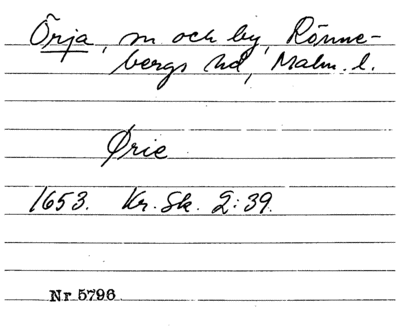 Örja, sn och by, Rönne-
bergs hd, Malm. l.
Ørie
1653. Kr. Sk. 2:39.
Nr 5796